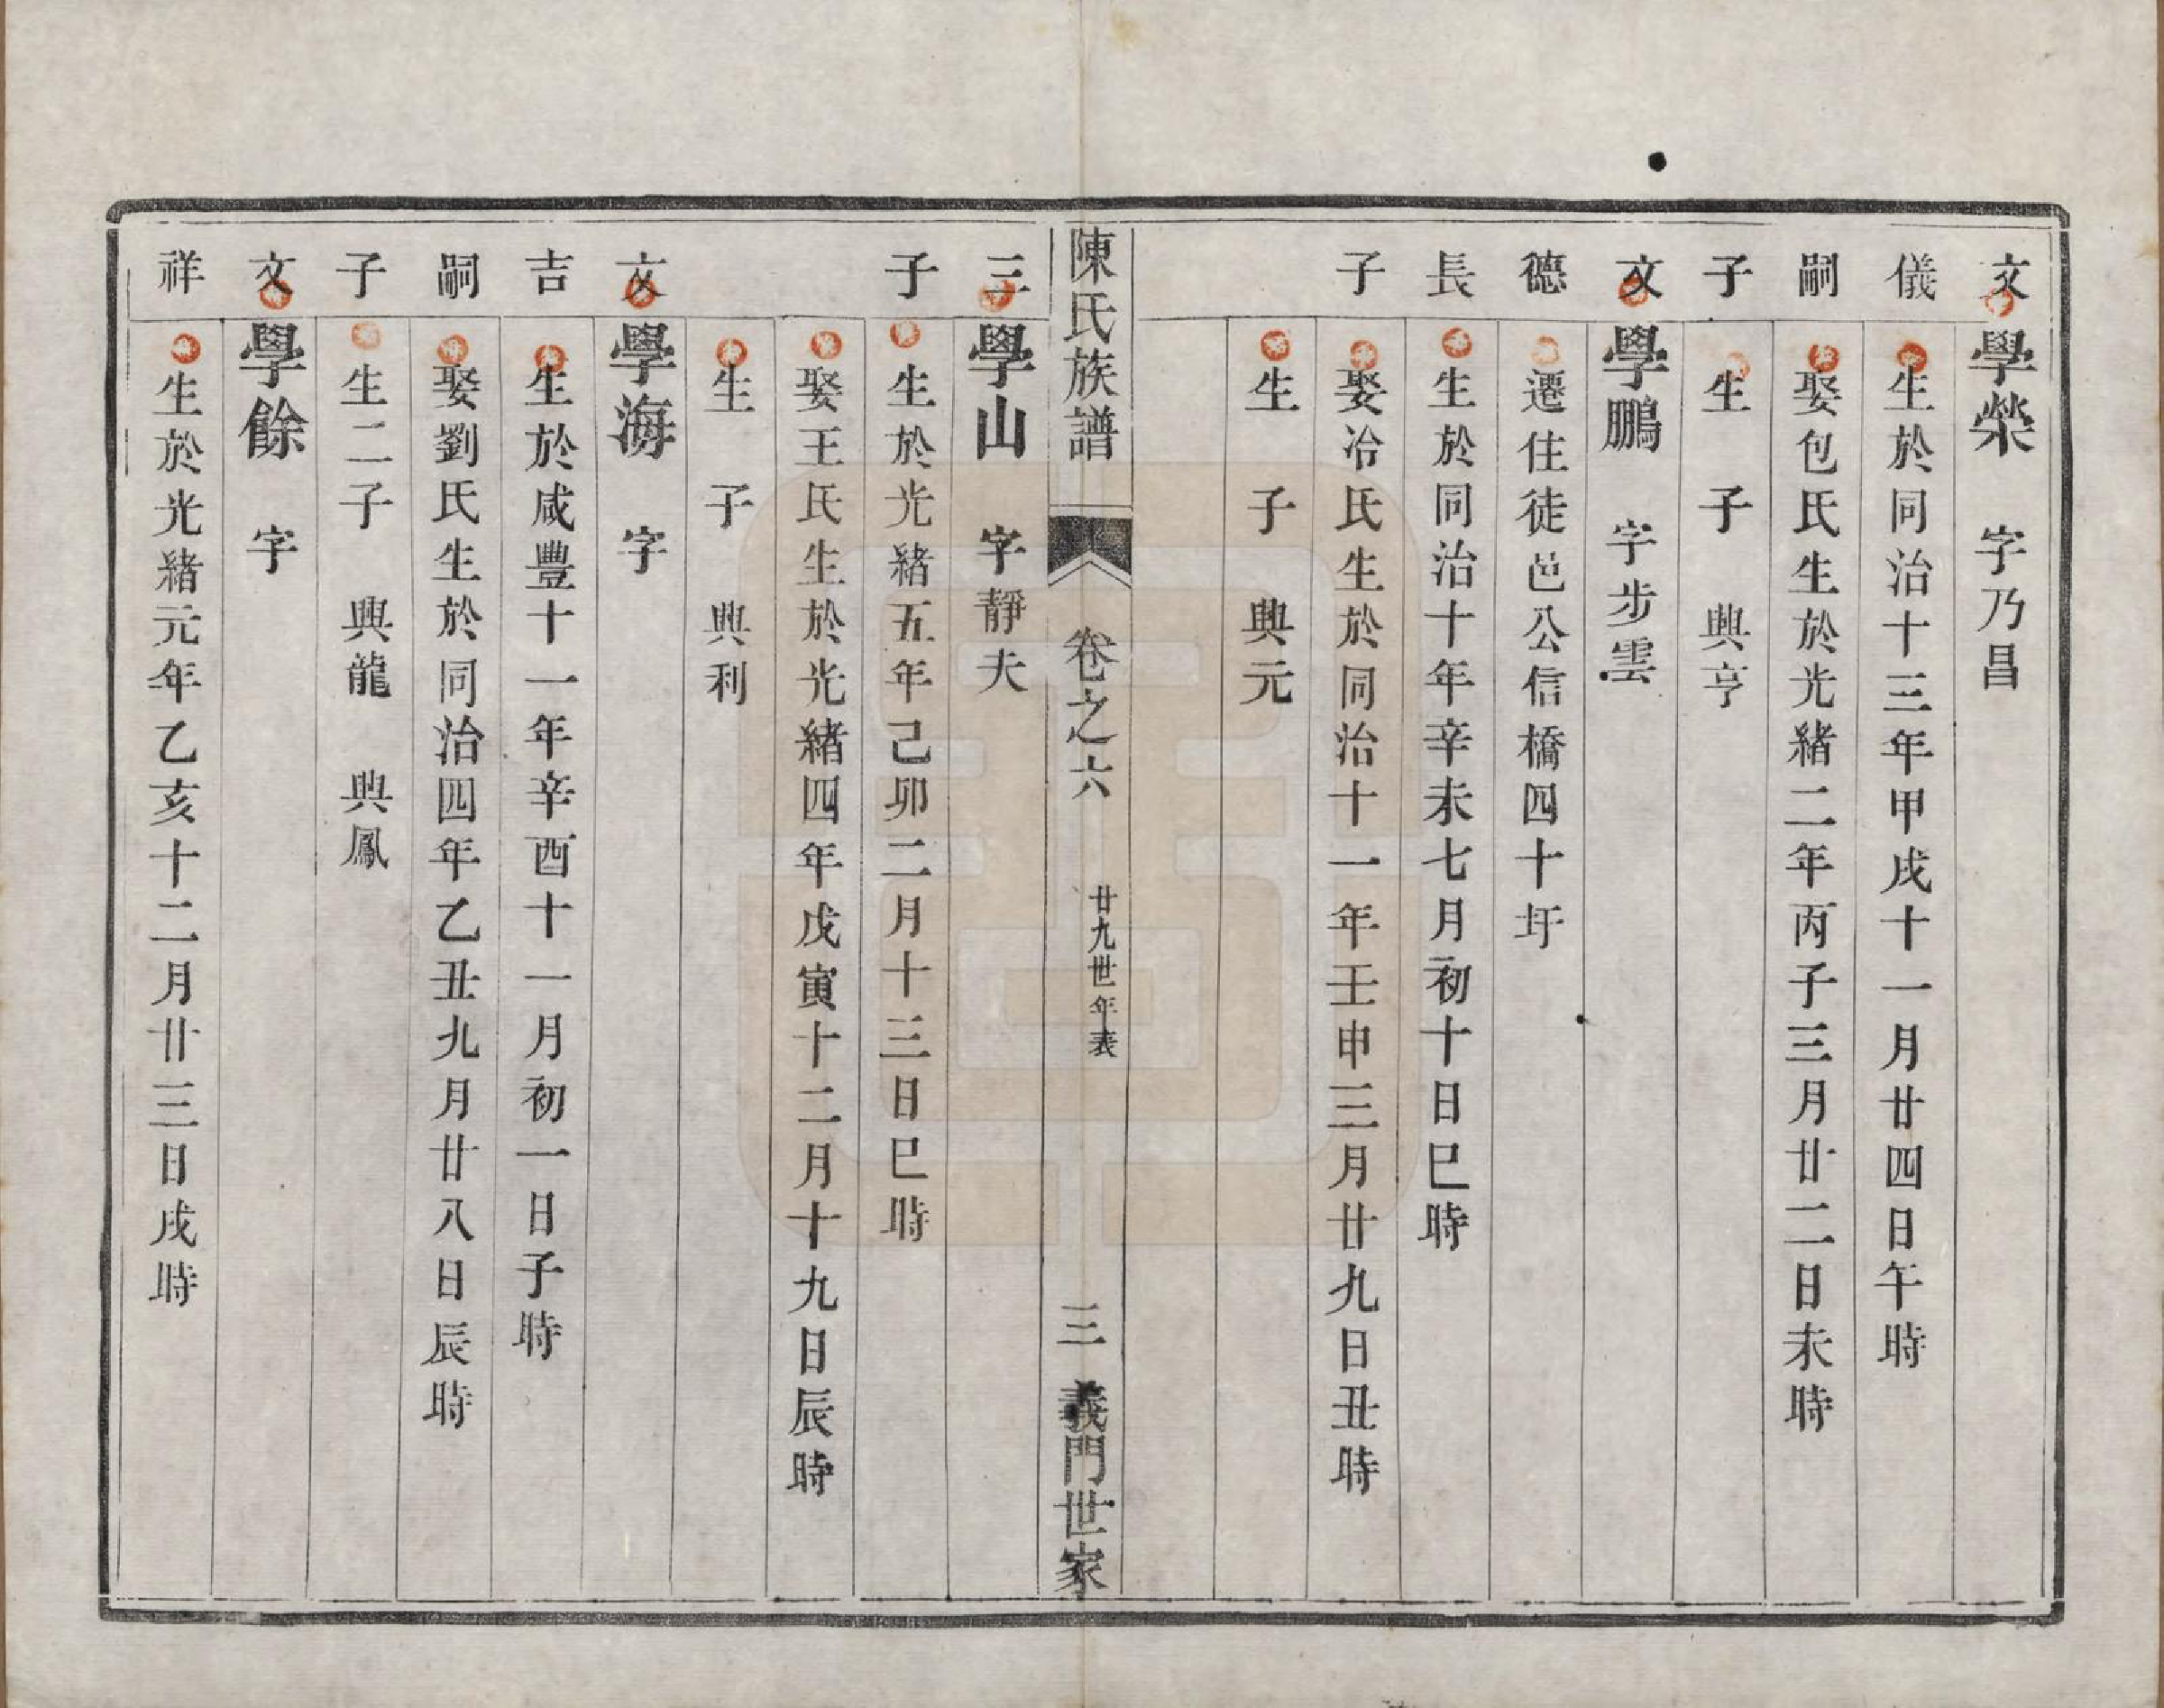 文儀嗣子
學榮 字乃昌
生於同治十三年甲戌十一月廿四日午時
娶包氏生於光緒二年丙子三月廿二日未時
生 子 興亨
文德長子
學鵬 字步雲
遷住徒邑公信橋四十圩
生於同治十年辛未七月初十日巳時
娶冷氏生於同治十一年壬申三月廿九日丑時
生 子 興元
陳氏族譜 卷之六 廿九世年表 三 義門世家
三子
學山 字靜夫
生於光緒五年己卯二月十三日巳時
娶王氏生於光緒四年戊寅十二月十九日辰時
生 子 興利
文吉嗣子
學海 字
生於咸豐十一年辛酉十一月初一日子時
娶劉氏生於同治四年乙丑九月廿八日辰時
生二子 興龍 興鳳
文祥
學餘 字
生於光緒元年乙亥十二月廿三日戌時